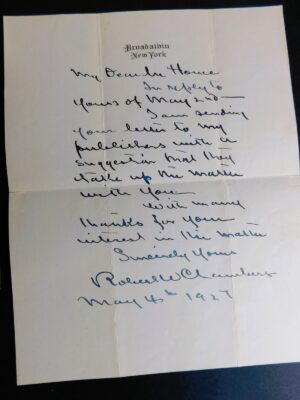 Broadalbin
New York
My Dear Mr Horne
In reply to
yours of May 2nd
I am sending
your letter to my
publishers with a
suggestion that they
take up the matter
with you
With many
thanks for your
interest in the matter
Sincerely Yours
Robert W Chambers
May 4th 1927